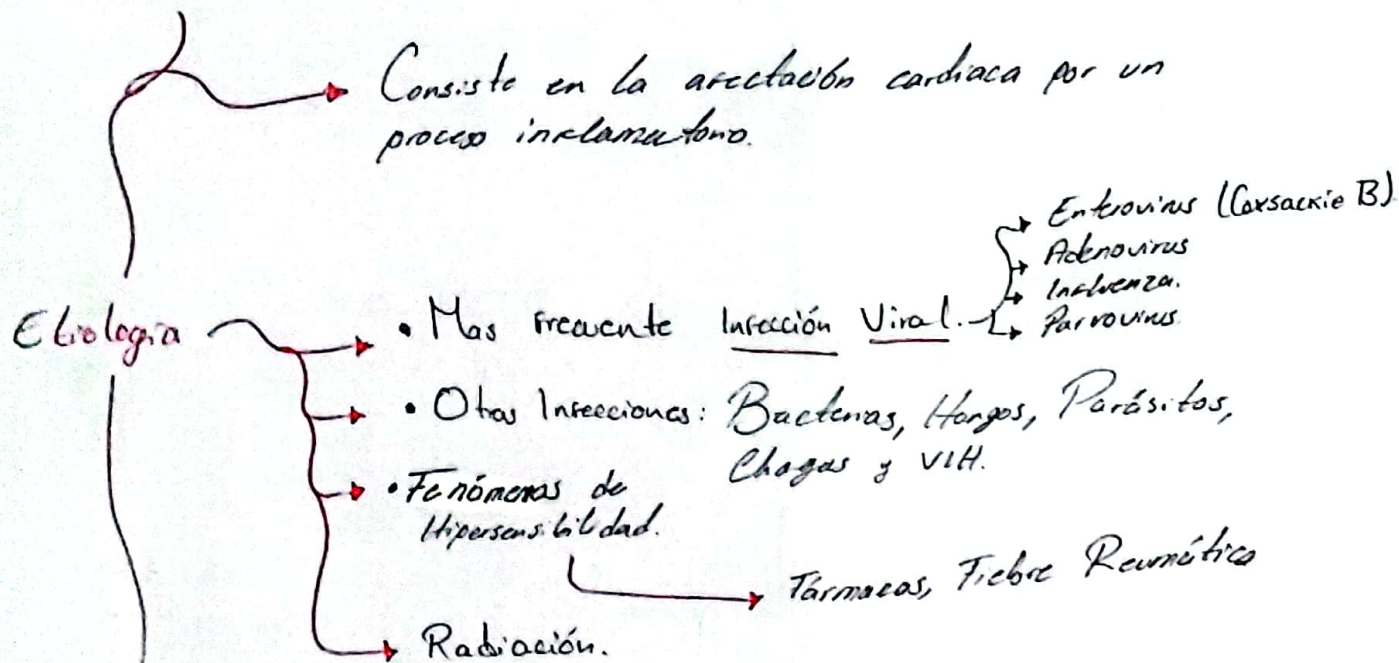 Consiste en la afectación cardiaca por un
proceso inflamatorio.
Etiología
• Mas frecuente Infección Viral.
Enterovirus (Coxsackie B)
Adenovirus
Influenza.
Parvovirus.
• Otras Infecciones: Bacterias, Hongos, Parásitos,
Chagas y VIH.
• Fenómenos de
Hipersensibilidad.
Fármacos, Fiebre Reumática
Radiación.